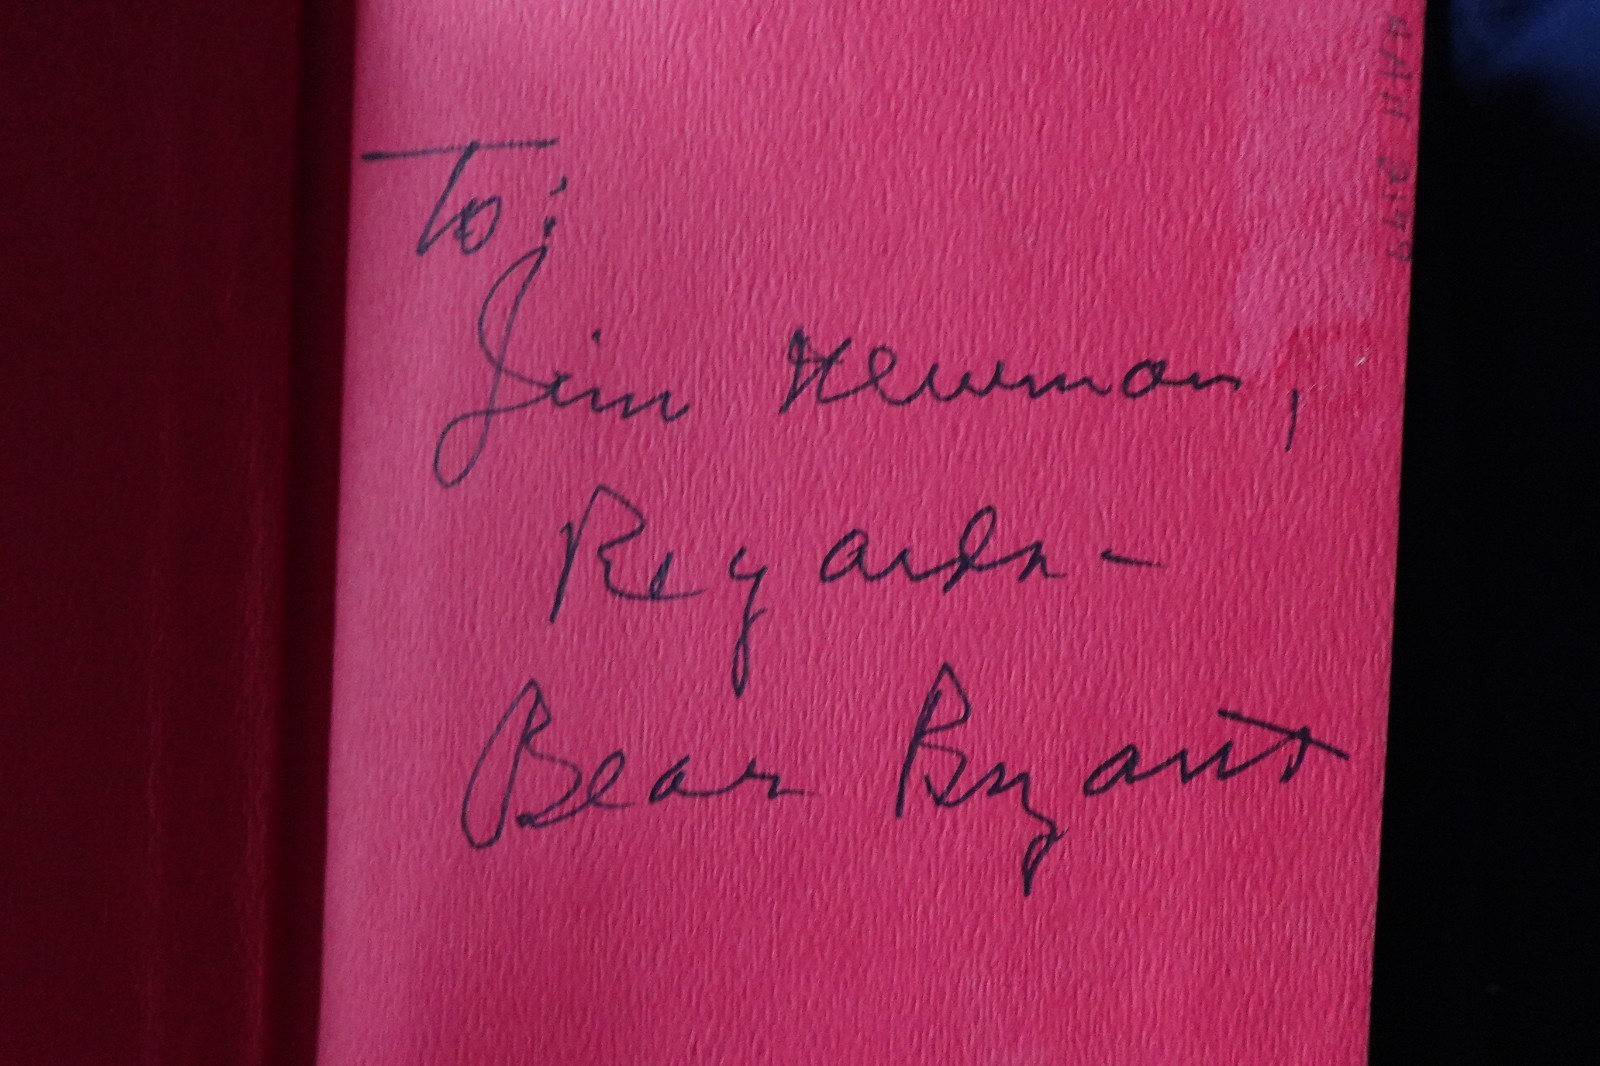 To:
Jim Newman,
Regards -
Bear Bryant